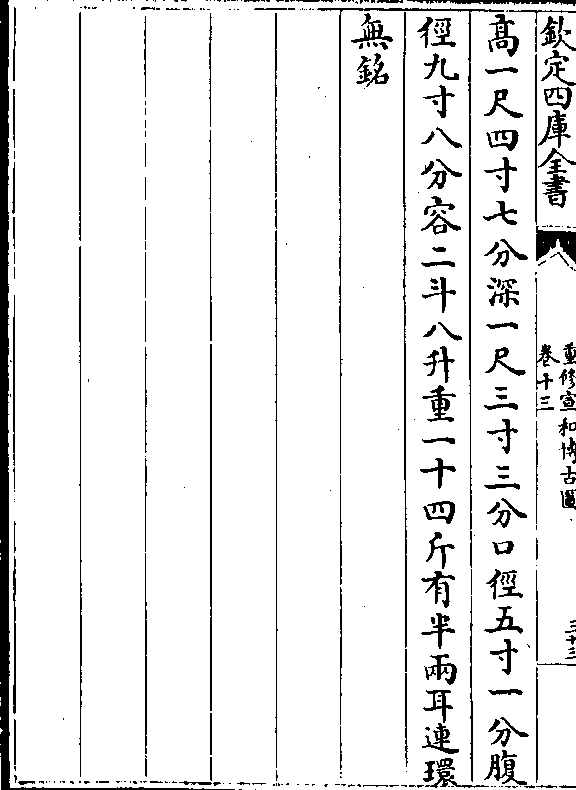 欽定四庫全書
重修宣和博古圖
卷十三
三十三
髙一尺四寸七分深一尺三寸三分口徑五寸一分腹
徑九寸八分容二斗八升重一十四斤有半兩耳連環
無銘